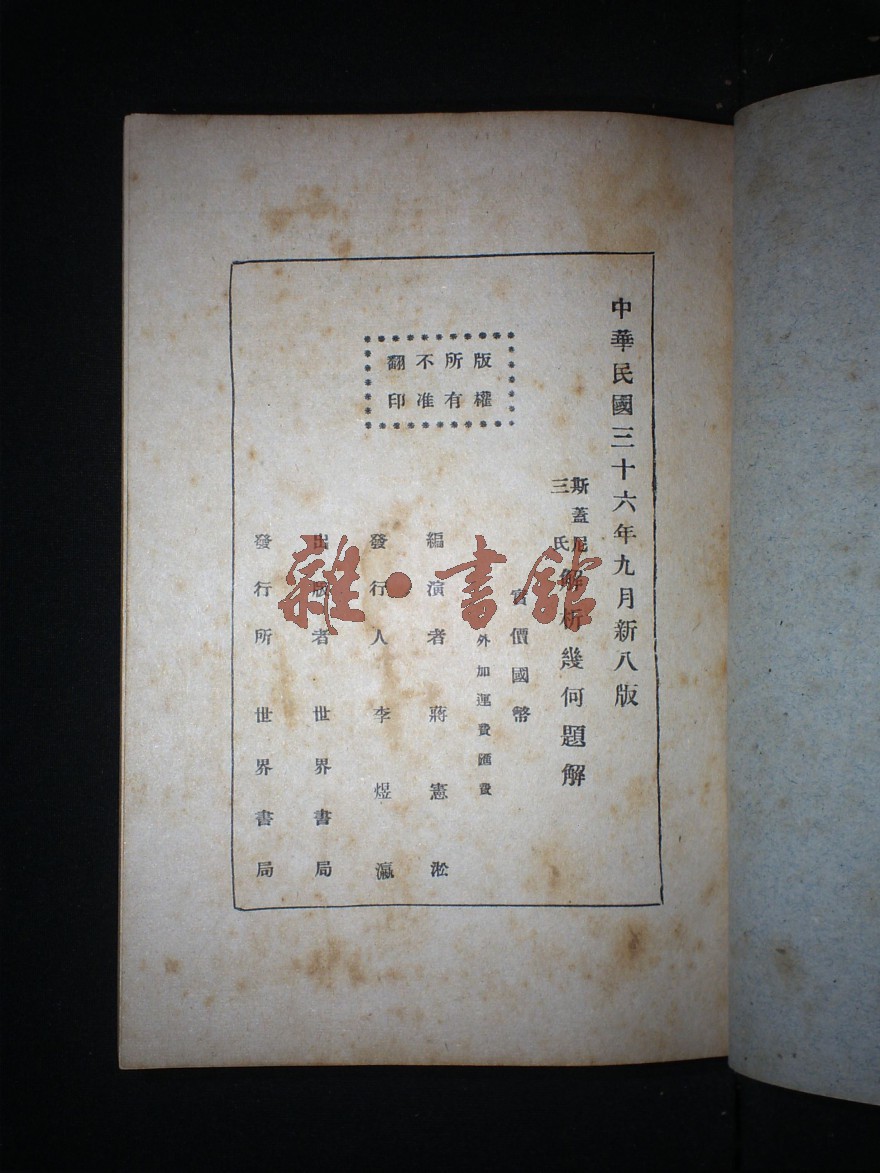 中華民國三十六年九月新八版
斯蓋尼三氏解析幾何題解
實價國幣
外加運費匯費
版權所有
不准翻印
編演者 蔣憲淞
發行人 李煜瀛
出版者 世界書局
發行所 世界書局
雜·書館